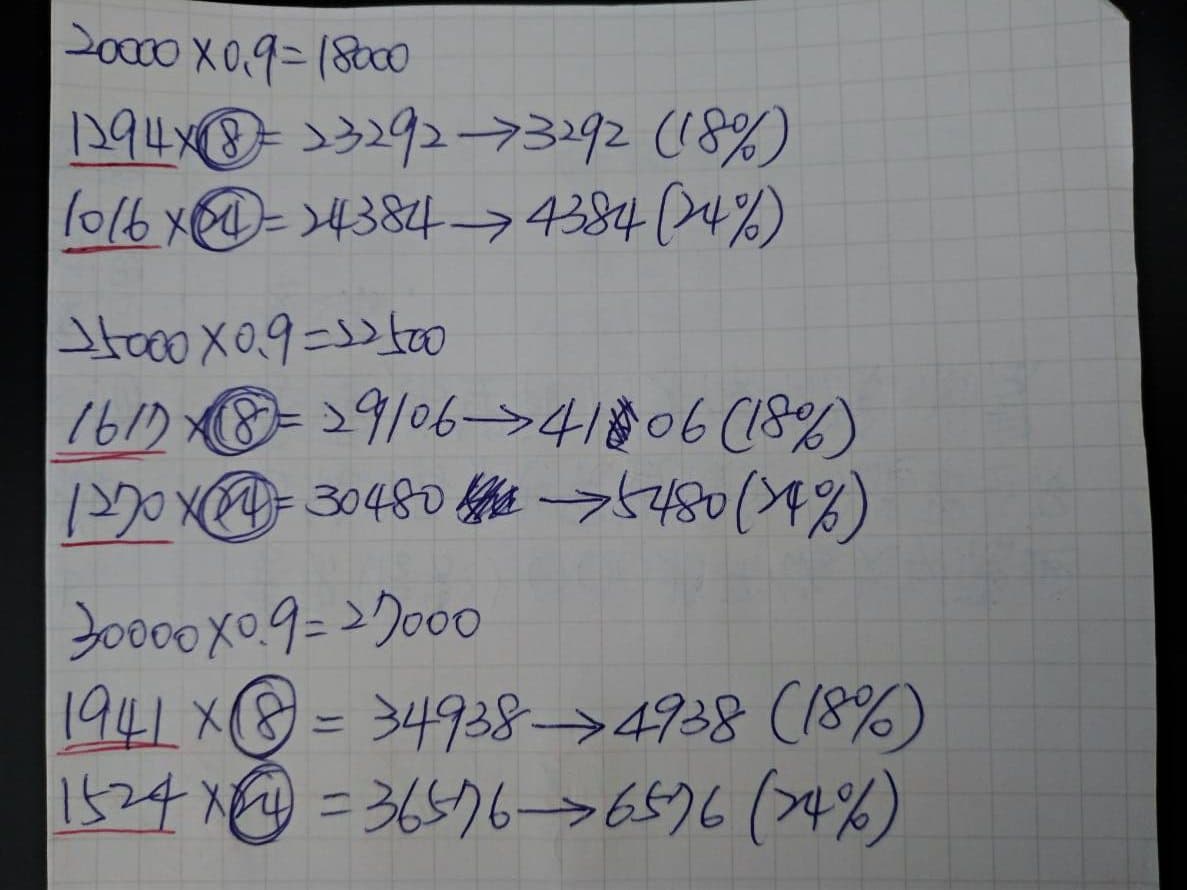 20000×0.9=18000
1294×18=23292→3292 (18%)
1016×24=24384→4384 (24%)
25000×0.9=22500
1617×18=29106→4106 (18%)
1270×24=30480→5480 (24%)
30000×0.9=27000
1941×18=34938→4938 (18%)
1524×24=36576→6576 (24%)